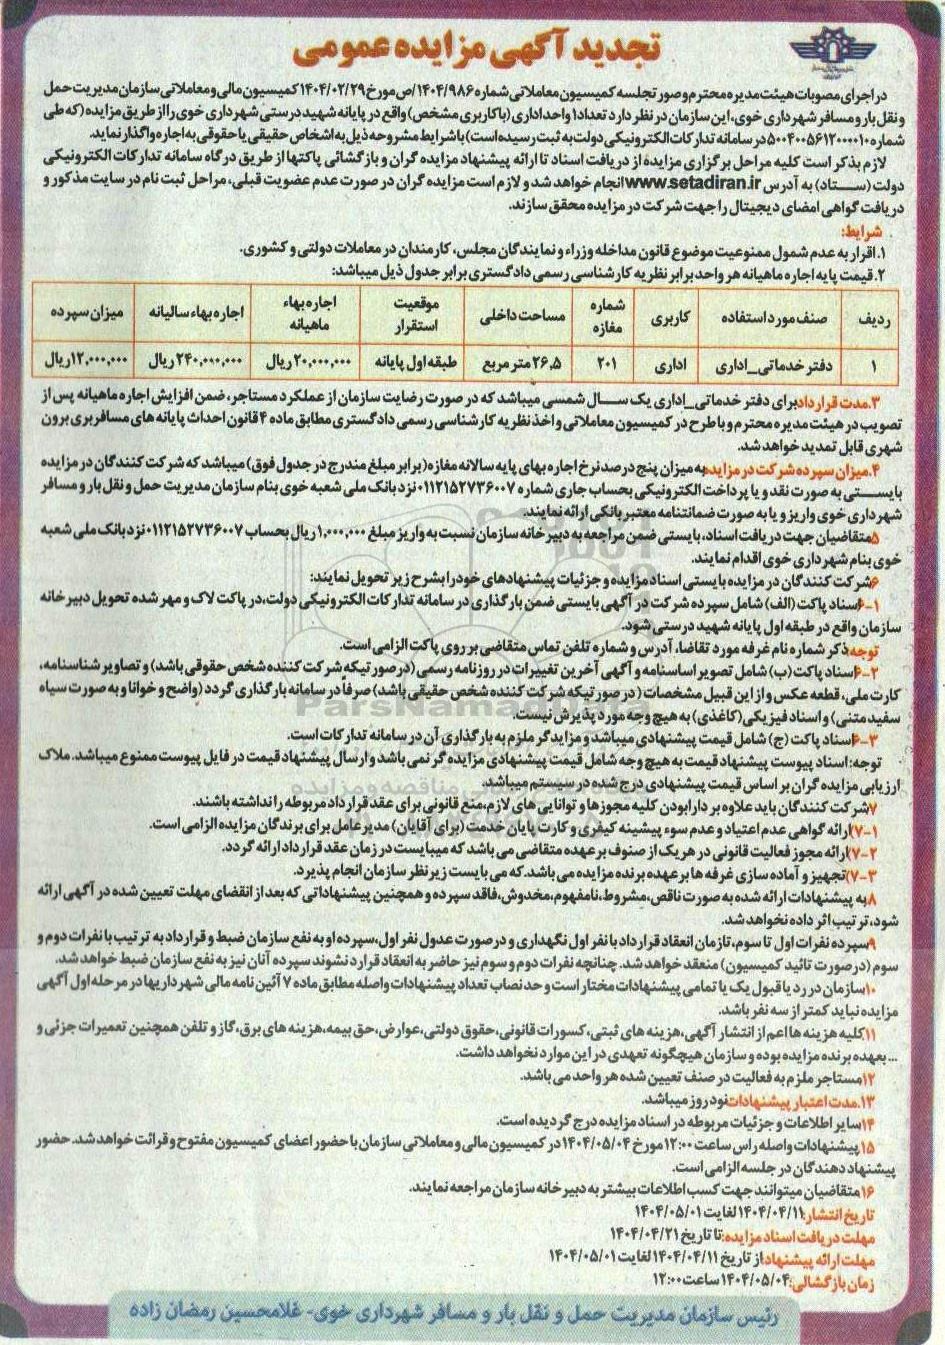 تجدید آگهی مزایده عمومی
در اجرای مصوبات هیئت مدیره محترم و صورتجلسه کمیسیون معاملاتی شماره ۱۴۰۴/۹۸۶/ص مورخ ۱۴۰۴/۰۲/۲۹ کمیسیون مالی و معاملاتی سازمان مدیریت حمل
و نقل بار و مسافر شهرداری خوی، این سازمان در نظر دارد تعداد ۱ واحد اداری (با کاربری مشخص) واقع در پایانه شهید درستی شهرداری خوی را از طریق مزایده (که طی
شماره ۵۰۰۴۰۰۵۶۱۲۰۰۰۰۱۰ در سامانه تدارکات الکترونیکی دولت به ثبت رسیده است) با شرایط مشروحه ذیل به اشخاص حقیقی یا حقوقی به اجاره واگذار نماید.
لازم بذکر است کلیه مراحل برگزاری مزایده از دریافت اسناد تا ارائه پیشنهاد مزایده گران و بازگشائی پاکتها از طریق درگاه سامانه تدارکات الکترونیکی
دولت (ستاد) به آدرس www.setadiran.ir انجام خواهد شد و لازم است مزایده گران در صورت عدم عضویت قبلی، مراحل ثبت نام در سایت مذکور و
دریافت گواهی امضای دیجیتال را جهت شرکت در مزایده محقق سازند.
شرایط:
۱.اقرار به عدم شمول ممنوعیت موضوع قانون مداخله وزراء و نمایندگان مجلس، کارمندان در معاملات دولتی و کشوری.
۲.قیمت پایه اجاره ماهیانه هر واحد برابر نظریه کارشناسی رسمی دادگستری برابر جدول ذیل میباشد:
ردیف صنف مورد استفاده کاربری شماره مغازه مساحت داخلی موقعیت استقرار اجاره بهاء ماهیانه اجاره بهاء سالیانه میزان سپرده
۱ دفتر خدماتی_اداری اداری ۲۰۱ ۲۶,۵ متر مربع طبقه اول پایانه ۲۰,۰۰۰,۰۰۰ ریال ۲۴۰,۰۰۰,۰۰۰ ریال ۱۲,۰۰۰,۰۰۰ ریال
۳.مدت قرارداد برای دفتر خدماتی_اداری یک سال شمسی میباشد که در صورت رضایت سازمان از عملکرد مستاجر، ضمن افزایش اجاره ماهیانه پس از
تصویب در هیئت مدیره محترم و با طرح در کمیسیون معاملاتی و اخذ نظریه کارشناسی رسمی دادگستری مطابق ماده ۴ قانون احداث پایانه های مسافربری برون
شهری قابل تمدید خواهد شد.
۴.میزان سپرده شرکت در مزایده به میزان پنج درصد نرخ اجاره بهای پایه سالانه مغازه (برابر مبلغ مندرج در جدول فوق) میباشد که شرکت کنندگان در مزایده
بایستی به صورت نقد و یا پرداخت الکترونیکی بحساب جاری شماره ۰۱۱۲۱۵۲۷۳۶۰۰۷ نزد بانک ملی شعبه خوی بنام سازمان مدیریت حمل و نقل بار و مسافر
شهرداری خوی واریز و یا به صورت ضمانتنامه معتبر بانکی ارائه نمایند.
۵متقاضیان جهت دریافت اسناد، بایستی ضمن مراجعه به دبیرخانه سازمان نسبت به واریز مبلغ ۱,۰۰۰,۰۰۰ ریال بحساب ۰۱۱۲۱۵۲۷۳۶۰۰۷ نزد بانک ملی شعبه
خوی بنام شهرداری خوی اقدام نمایند.
۶شرکت کنندگان در مزایده بایستی اسناد مزایده و جزئیات پیشنهادهای خود را بشرح زیر تحویل نمایند:
۶-۱)اسناد پاکت (الف) شامل سپرده شرکت در آگهی بایستی ضمن بارگذاری در سامانه تدارکات الکترونیکی دولت، در پاکت لاک و مهر شده تحویل دبیرخانه
سازمان واقع در طبقه اول پایانه شهید درستی شود.
توجه: ذکر شماره نام غرفه مورد تقاضا، آدرس و شماره تلفن تماس متقاضی بر روی پاکت الزامی است.
۶-۲)اسناد پاکت (ب) شامل تصویر اساسنامه و آگهی آخرین تغییرات در روزنامه رسمی (در صورتیکه شرکت کننده شخص حقوقی باشد) و تصاویر شناسنامه،
کارت ملی، قطعه عکس و از این قبیل مشخصات (در صورتیکه شرکت کننده شخص حقیقی باشد) صرفاً در سامانه بارگذاری گردد (واضح و خوانا و به صورت سیاه
سفید متنی) و اسناد فیزیکی (کاغذی) به هیچ وجه مورد پذیرش نیست.
ParsNamadData
۶-۳)اسناد پاکت (ج) شامل قیمت پیشنهادی میباشد و مزایدگر ملزم به بارگذاری آن در سامانه تدارکات است.
توجه: اسناد پیوست پیشنهاد قیمت به هیچ وجه شامل قیمت پیشنهادی مزایده گر نمی باشد و ارسال پیشنهاد قیمت در فایل پیوست ممنوع میباشد. ملاک
ارزیابی مزایده گران بر اساس قیمت پیشنهادی درج شده در سیستم میباشد.
۷شرکت کنندگان باید علاوه بر دارا بودن کلیه مجوزها و توانایی های لازم، منع قانونی برای عقد قرارداد مربوطه را نداشته باشند.
۷-۱)ارائه گواهی عدم اعتیاد و عدم سوء پیشینه کیفری و کارت پایان خدمت (برای آقایان) مدیرعامل برای برندگان مزایده الزامی است.
۷-۲)ارائه مجوز فعالیت قانونی در هر یک از صنوف بر عهده متقاضی می باشد که میبایست در زمان عقد قرارداد ارائه گردد.
۷-۳)تجهیز و آماده سازی غرفه ها بر عهده برنده مزایده می باشد. که می بایست زیر نظر سازمان انجام پذیرد.
۸به پیشنهادات ارائه شده به صورت ناقص، مشروط، نامفهوم، مخدوش، فاقد سپرده و همچنین پیشنهاداتی که بعد از انقضای مهلت تعیین شده در آگهی ارائه
شود، ترتیب اثر داده نخواهد شد.
۹سپرده نفرات اول تا سوم، تا زمان انعقاد قرارداد با نفر اول نگهداری و در صورت عدول نفر اول، سپرده او به نفع سازمان ضبط و قرارداد به ترتیب با نفرات دوم و
سوم (در صورت تائید کمیسیون) منعقد خواهد شد. چنانچه نفرات دوم و سوم نیز حاضر به انعقاد قرارد نشوند سپرده آنان نیز به نفع سازمان ضبط خواهد شد.
۱۰سازمان در رد یا قبول یک یا تمامی پیشنهادات مختار است و حد نصاب تعداد پیشنهادات واصله مطابق ماده ۷ آئین نامه مالی شهرداریها در مرحله اول آگهی
مزایده نباید کمتر از سه نفر باشد.
۱۱کلیه هزینه ها اعم از انتشار آگهی، هزینه های ثبتی، کسورات قانونی، حقوق دولتی، عوارض، حق بیمه، هزینه های برق، گاز و تلفن همچنین تعمیرات جزئی و
... بعهده برنده مزایده بوده و سازمان هیچگونه تعهدی در این موارد نخواهد داشت.
۱۲مستاجر ملزم به فعالیت در صنف تعیین شده هر واحد می باشد.
۱۳.مدت اعتبار پیشنهادات نود روز میباشد.
۱۴سایر اطلاعات و جزئیات مربوطه در اسناد مزایده درج گردیده است.
۱۵پیشنهادات واصله راس ساعت ۱۲:۰۰ مورخ ۱۴۰۴/۰۵/۰۴ در کمیسیون مالی و معاملاتی سازمان با حضور اعضای کمیسیون مفتوح و قرائت خواهد شد. حضور
پیشنهاد دهندگان در جلسه الزامی است.
۱۶متقاضیان میتوانند جهت کسب اطلاعات بیشتر به دبیرخانه سازمان مراجعه نمایند.
تاریخ انتشار: ۱۴۰۴/۰۴/۱۱ لغایت ۱۴۰۴/۰۵/۰۱
مهلت دریافت اسناد مزایده: تا تاریخ ۱۴۰۴/۰۴/۲۱
مهلت ارائه پیشنهاد: از تاریخ ۱۴۰۴/۰۴/۱۱ لغایت ۱۴۰۴/۰۵/۰۱
زمان بازگشائی: ۱۴۰۴/۰۵/۰۴ ساعت ۱۲:۰۰
رئیس سازمان مدیریت حمل و نقل بار و مسافر شهرداری خوی- غلامحسین رمضان زاده